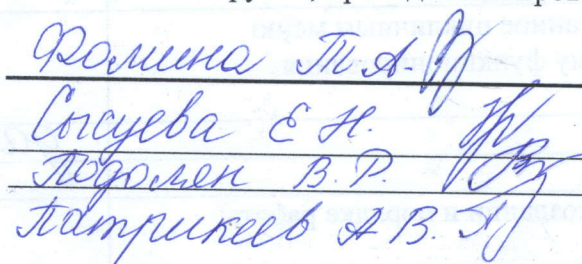 Фомина Т А.
Сысуева Е Н.
Подолян В. Р.
Патрикеев А В.